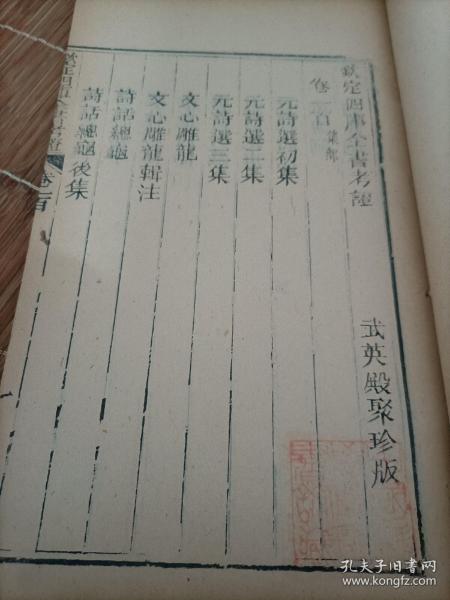 欽定四庫全書考證
卷一百 集部
元詩選初集
元詩選二集
元詩選三集
文心雕龍
文心雕龍輯注
詩話總龜
詩話總龜後集
欽定四庫全書考證 卷一百
武英殿聚珍版
孔夫子旧书网
www.kongfz.com